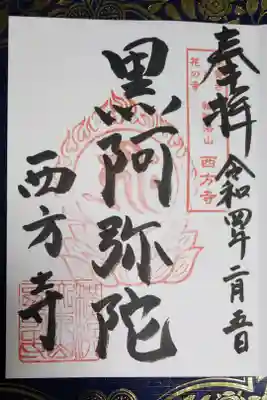 奉拝 令和四年二月五日
西方寺
黒阿弥陀
西方寺